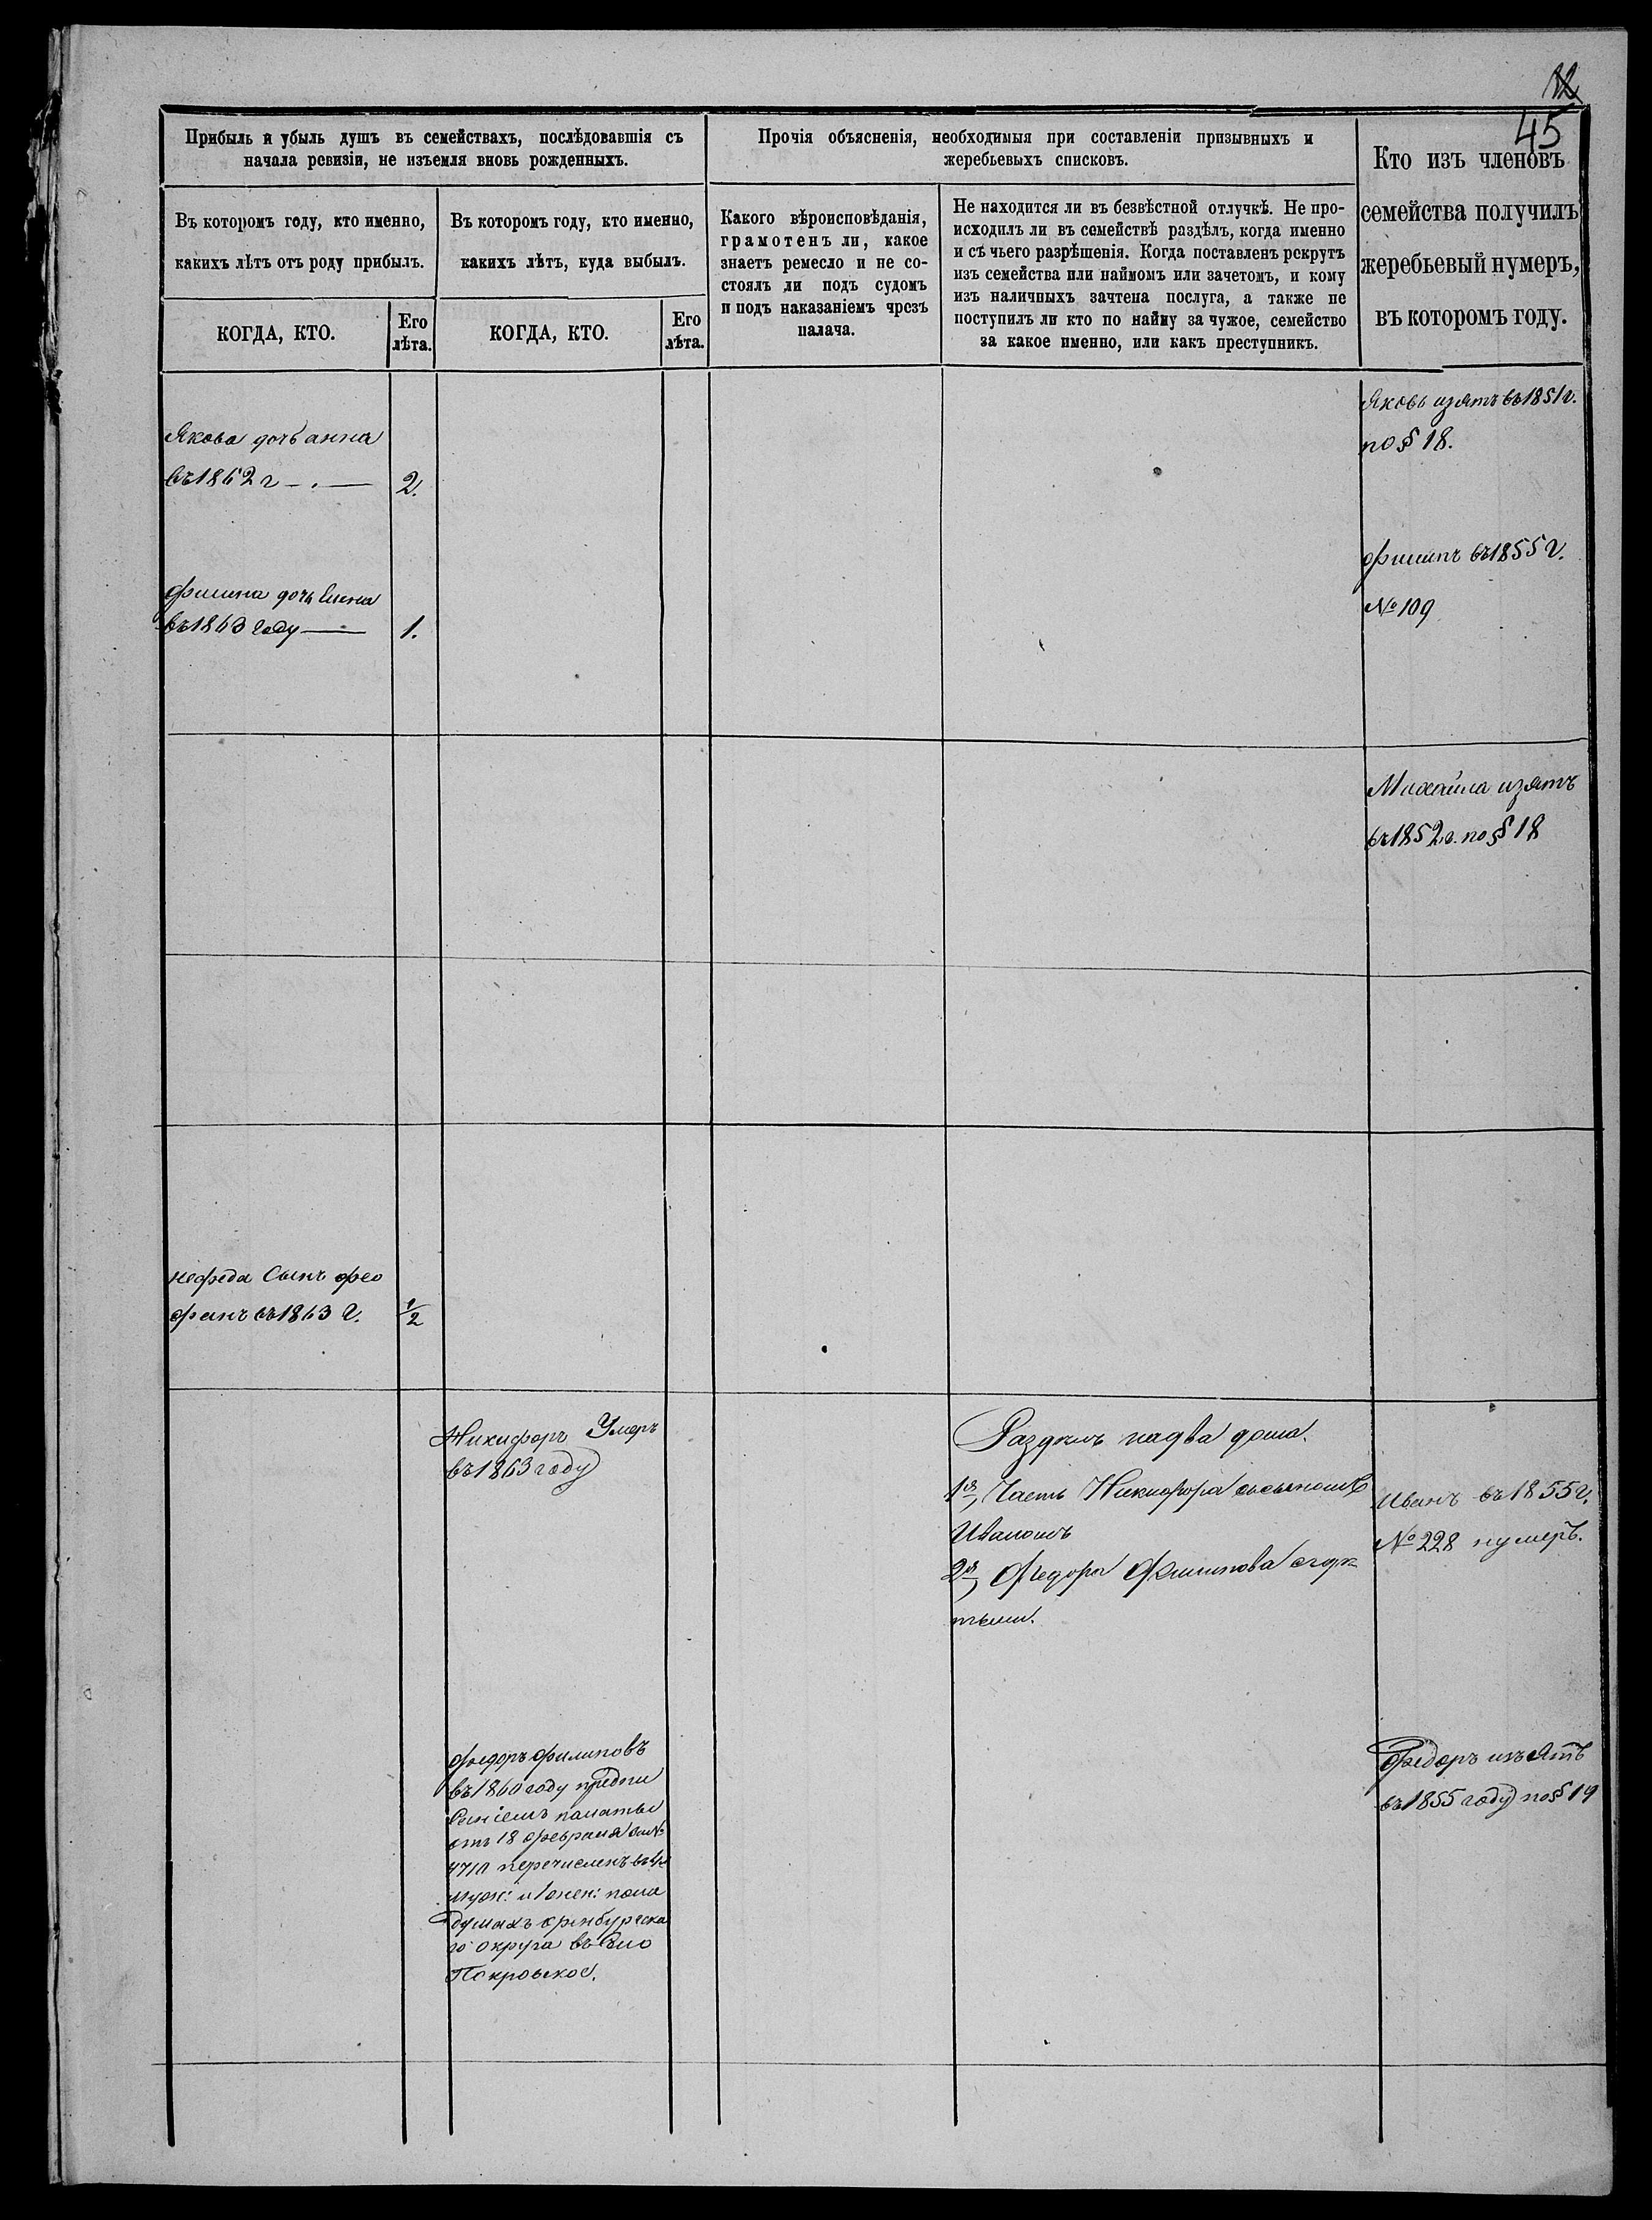 45
Прибыль и убыль душъ въ семействахъ, послѣдовавшія съ
начала ревизіи, не изъемля вновь рожденныхъ.
Прочія объясненія, необходимыя при составленіи призывныхъ и
жеребьевыхъ списковъ.
Кто изъ членовъ
семейства получилъ
жеребьевый нумеръ,
въ которомъ году.
Въ которомъ году, кто именно,
какихъ лѣтъ отъ роду прибылъ.
Въ которомъ году, кто именно,
какихъ лѣтъ, куда выбылъ.
Какого вѣроисповѣданія,
грамотенъ ли, какое
знаетъ ремесло и не со-
стоялъ ли подъ судомъ
и подъ наказаніемъ чрезъ
палача.
Не находится ли въ безвѣстной отлучкѣ. Не про-
исходилъ ли въ семействѣ раздѣлъ, когда именно
и съ чьего разрѣшенія. Когда поставленъ рекрутъ
изъ семейства или наймомъ или зачетомъ, и кому
изъ наличныхъ зачтена послуга, а также не
поступилъ ли кто по найму за чужое, семейство
за какое именно, или какъ преступникъ.
КОГДА, КТО.
Его
лѣта.
КОГДА, КТО.
Его
лѣта.
Яковъ изятъ въ 1851 г.
по § 18.
Якова дочь анна
въ 1862 г — . — 2.
филипъ въ 1855 г.
№ 109
филипа дочь
въ 1863 году — 1.
Михайла изятъ
въ 1852 г. по § 18
нефеда Сынъ фео
фанъ въ 1863 г. 1/2
Никифоръ Умеръ
въ 1863 году
Раздѣлъ на два дома.
1я, Часть Никифора съ сыномъ
Иваномъ
2я, Федора Филипова съ дѣ
тьми.
Иванъ въ 1855 г.
№ 228 нумеръ.
федоръ филиповъ
въ 1860 году предпи
саніемъ палаты
отъ 18 февраля за №
4710 перечисленъ въ
муж: и женск: пола
душахъ оренбургска
го округа въ село
Покровское.
федоръ изъятъ
въ 1855 году по § 19